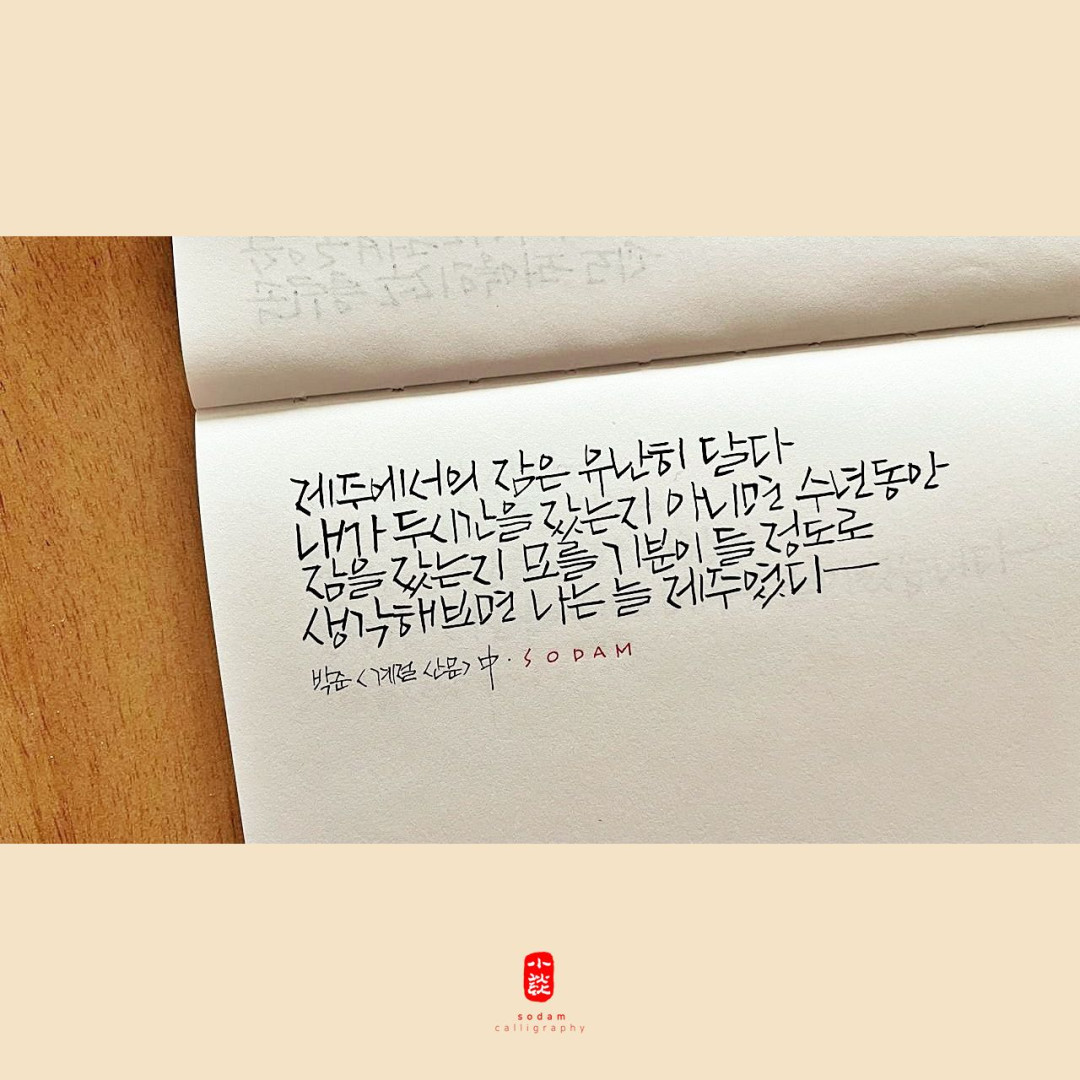 제주에서의 잠은 유난히 달다
내가 두시간을 잤는지 아니면 수년동안
잠을 잤는지 모를 기분이 들 정도로
생각해보면 나는 늘 제주였다
박준 <계절 산문> 中. SODAM
小談
sodam
calligraphy